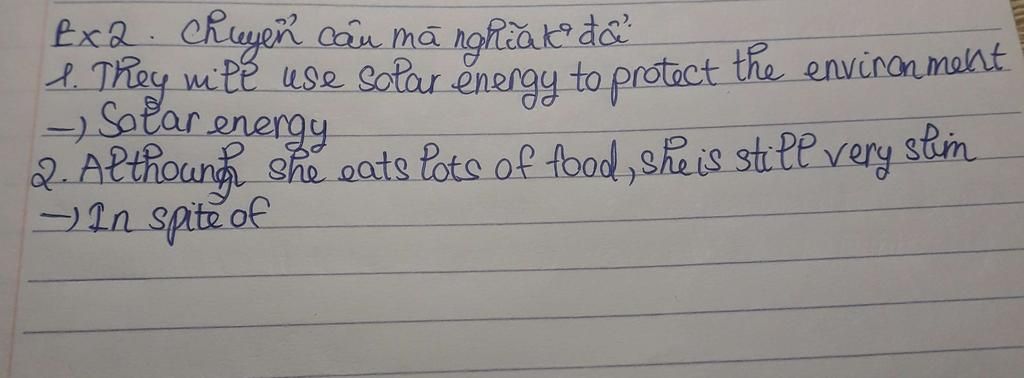 Ex2. Chuyển câu mà nghĩa k° đổi
1. They will use solar energy to protect the environment
→ Solar energy
2. Although she eats lots of food, she is still very slim
→ In spite of